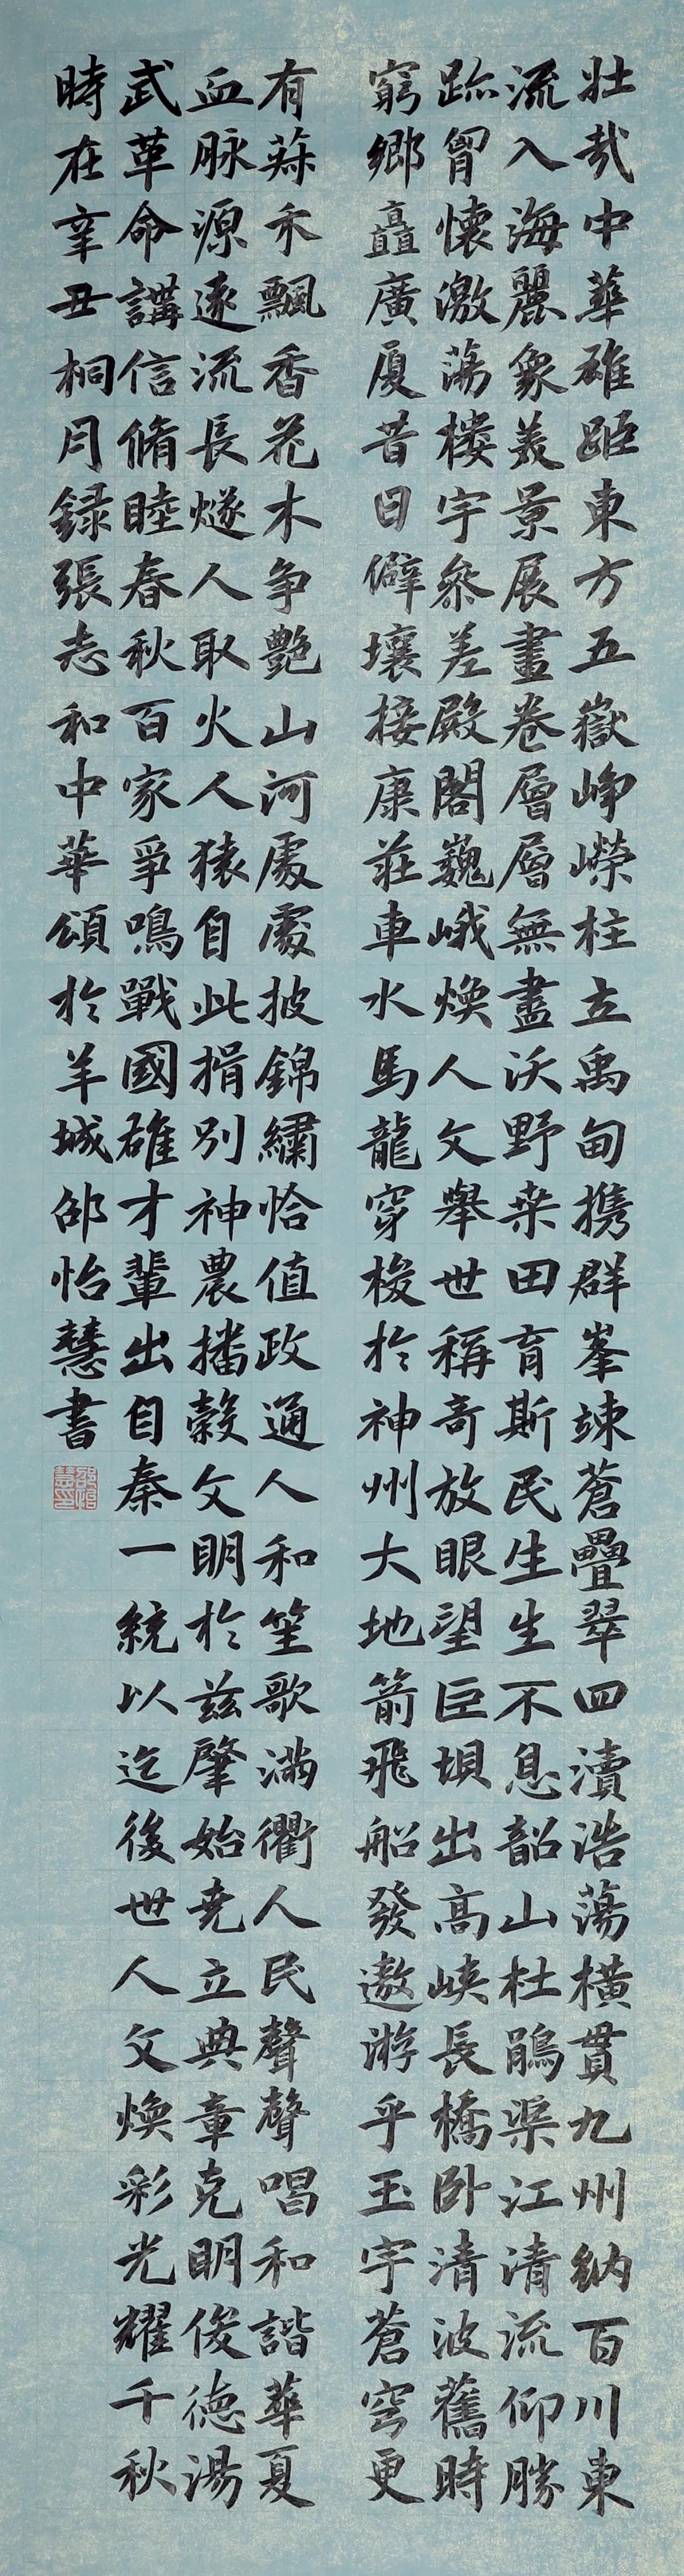 壯哉中華雄踞東方五嶽崢嶸柱立禹甸攜群峯竦蒼疊翠四瀆浩蕩橫貫九州納百川東
流入海麗象美景展畫卷層層無盡沃野桒田育斯民生生不息韶山杜鵑渠江清流仰勝
跡胷懷激蕩樓宇參差殿閣巍峨煥人文舉世稱奇放眼望巨垻出高峽長橋卧清波舊時
窮鄉矗廣厦昔日僻壤接康莊車水馬龍穿梭於神州大地箭飛船發遨游乎玉宇蒼穹更
有蔴禾飄香花木争艷山河處處披錦繡恰值政通人和笙歌滿衢人民聲聲唱和諧華夏
血脉源逺流長燧人取火人猿自此揖别神農播穀文明於兹肇始尭立典章克明俊德湯
武革命講信脩睦春秋百家爭鳴戰國雄才輩出自秦一統以迄後世人文煥彩光耀千秋
時在辛丑桐月錄張志和中華頌於羊城邵怡慧書
邵怡慧印